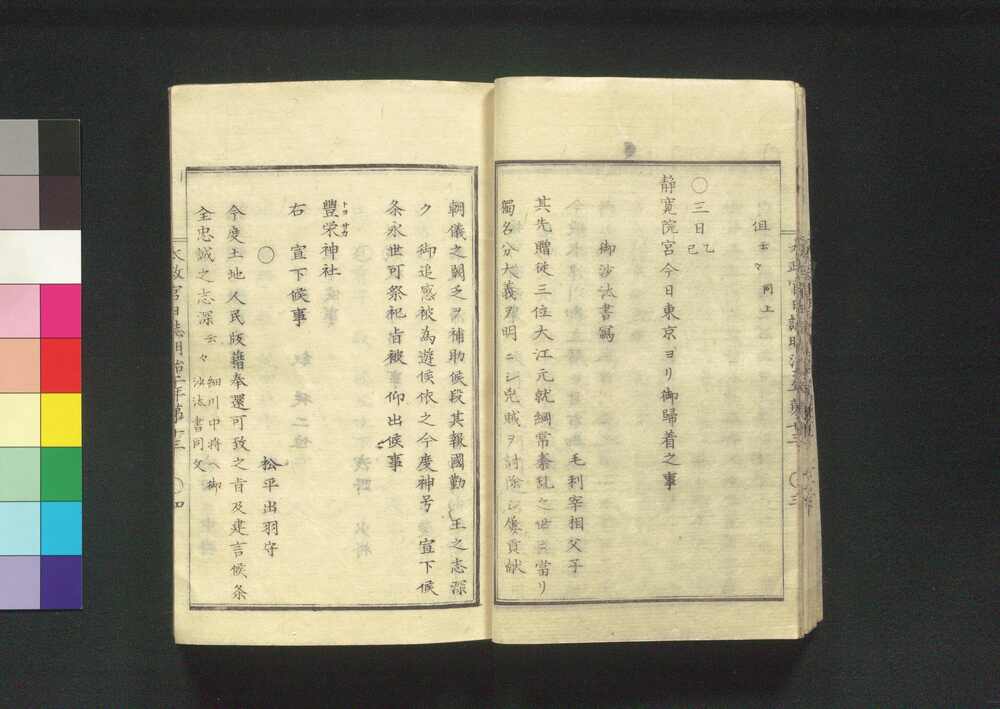 但云々 同上
〇三日乙己
静寛院宮今日東京ヨリ御歸着之事
御沙汰書寫
毛利宰相父子
其先贈従三位大江元就綱常紊乱之世ニ當リ
獨名分大義ヲ明ニシ兇賊ヲ討除シ屡貢献
朝儀之闕乏ヲ補助候段其報國勤 王之志深
ク 御追感被為遊候依之今度神号 宣下候
条永世可祭祀旨被 仰出候事
豐栄神社
トヨサカ
右 宣下候事
〇
松平出羽守
今度土地人民版籍奉還可致之旨及建言候条
全忠誠之志深云々 細川中将ヘ御
沙汰書同文
太政官日誌明治二年第十三 〇四